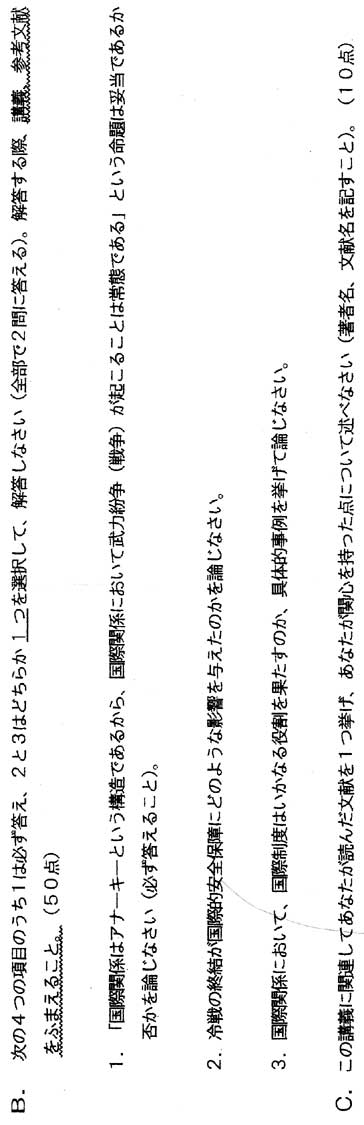 B. 次の4つの項目のうち1は必ず答え、2と3はどちらか1つを選択して、解答しなさい(全部で2問に答える)。解答する際、講義、参考文献
をふまえること。(50点)
1.「国際関係はアナーキーという構造であるから、国際関係において武力紛争(戦争)が起こることは常態である」という命題は妥当であるか
否かを論じなさい(必ず答えること)。
2.冷戦の終結が国際的安全保障にどのような影響を与えたのかを論じなさい。
3.国際関係において、国際制度はいかなる役割を果たすのか、具体的事例を挙げて論じなさい。
C. この講義に関連してあなたが読んだ文献を1つ挙げ、あなたが関心を持った点について述べなさい(著者名、文献名を記すこと)。(10点)